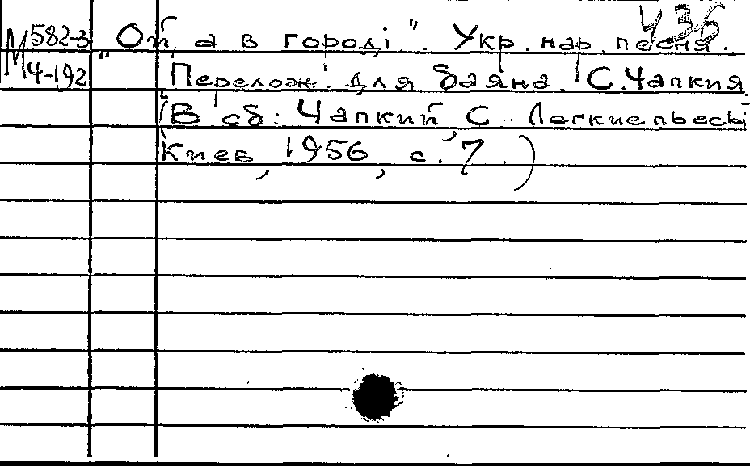 М 582-3 „Ой, а в городі". Укр. нар. песня. 435
4-192 Перелож. для баяна С. Чапкия
(В сб: Чапкий, С. Легкие пьесы
Киев, 1956, с. 7)